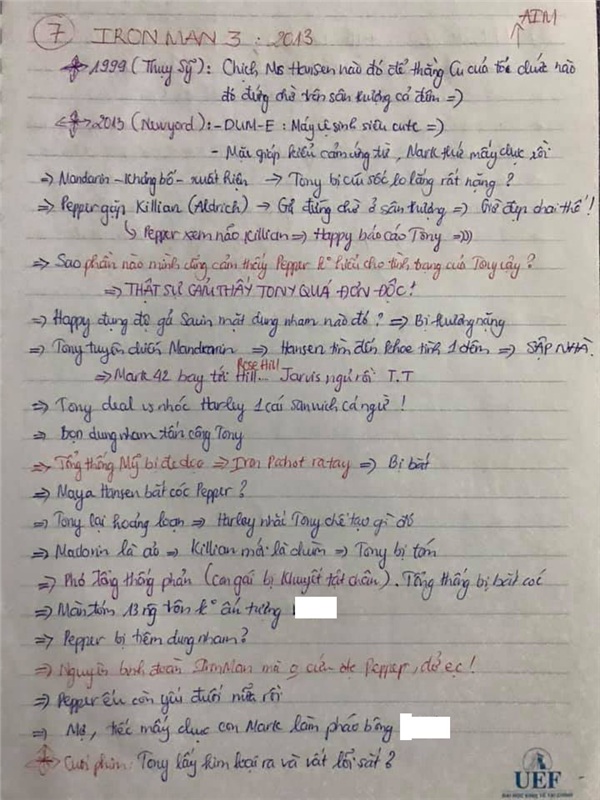 AIM
7 IRON MAN 3 : 2013
1999 (Thụy Sỹ) : Chịch Ms Hansen nào đó để thằng Cu của tổ chức nào
đó đứng chờ trên sân thượng cả đêm =)
2013 (Newyord) : - DUM-E : Máy vệ sinh siêu cute =)
- Mũi giúp kiểu cảm ứng từ, Mark thứ mấy chục rồi
=> Mandarin - khủng bố - xuất hiện -> Tony bị cú sốc lo lắng rất nặng ?
=> Pepper gặp Killian (Aldrich) -> Gã đứng chờ ở sân thượng => Giờ đẹp chai thế !
Pepper xem não Killian => Happy báo cáo Tony =)))
=> Sao phần nào mình cũng cảm thấy Pepper k° hiểu cho tình trạng của Tony vậy ?
=> THẬT SỰ CẢM THẤY TONY QUÁ ĐƠN ĐỘC !
=> Happy đụng độ gã Savin mặt dung nham nào đó ? => Bị thương nặng
=> Tony tuyên chiến Mandarin => Hansen tìm đến khoe tình 1 đêm => SẬP NHÀ.
=> Mark 42 bay tới Rose Hill... Jarvis ngủ rồi T.T
=> Tony deal vs nhóc Harley 1 cái sanwich cá ngừ !
=> Bọn dung nham tấn công Tony
=> Tổng thống Mỹ bị đe dọa => Iron Patriot ra tay => Bị bắt
=> Maya Hansen bắt cóc Pepper ?
=> Tony lại hoảng loạn => Harley nhắc Tony chế tạo gì đó
=> Madarin là ảo => Killian mới là chùm => Tony bị tóm
=> Phó tổng thống phản (con gái bị khuyết tật chân). Tổng thống bị bắt cóc
=> Màn tóm 13 ng tròn k° ấn tượng
=> Pepper bị tiêm dung nham ?
=> Nguyên binh đoàn IronMan mà o cứu đc Pepper, dở ẹc !
=> Pepper éu còn yếu đuối nữa rồi
=> Mẹ, tiếc mấy chục con Mark làm pháo bông
Cuối phim : Tony lấy kim loại ra và vứt lõi sắt ?
UEF
ĐẠI HỌC KINH TẾ TÀI CHÍNH